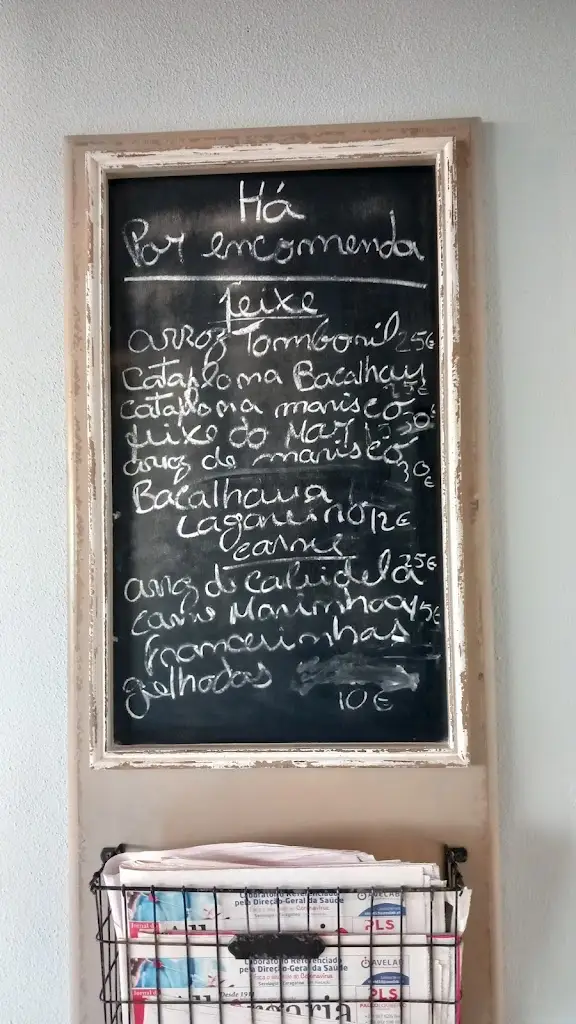 Há
Por encomenda
peixe
arroz Tamboril 25€
Cataplana Bacalhau 25€
cataplana marisco
peixe do Mar 30€
arroz de marisco 30€
Bacalhau a
Lagareiro 12€
carne
arroz d cabidela 25€
carne
francesinhas
grelhadas
10€
Laboratório Referenciado
pela Direção-Geral da Saúde
AVELAB
PLS
Jornal da
Laboratório Referenciado
pela Direção-Geral da Saúde
AVELAB
PLS
Jornal da
Desde 19